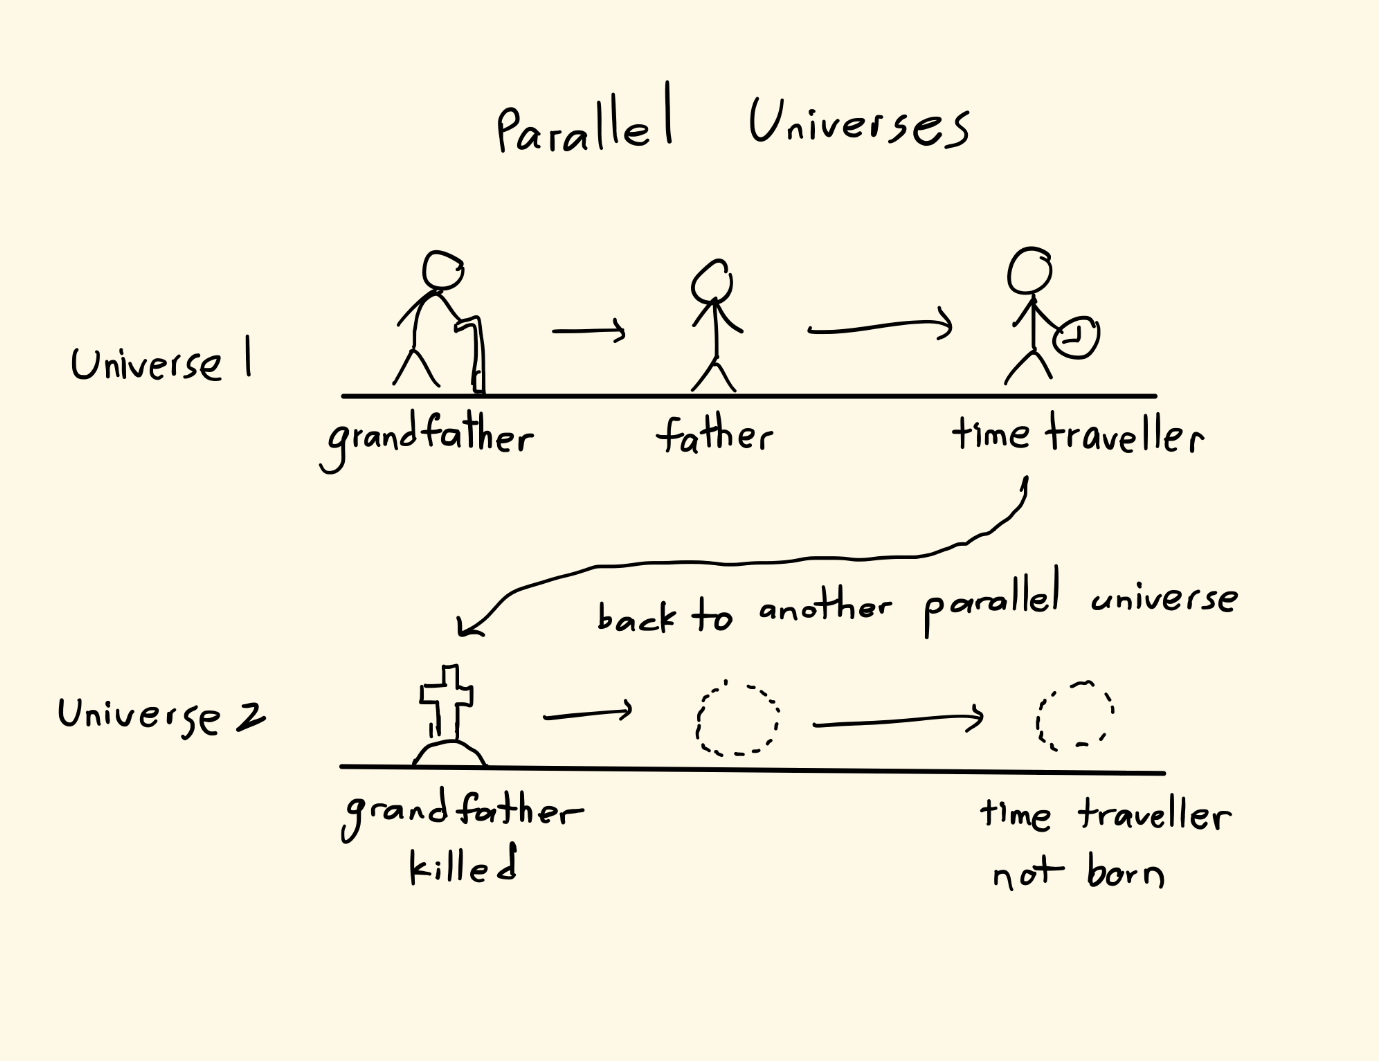 Parallel Universes
Universe 1
grandfather father time traveller
back to another parallel universe
Universe 2
grandfather time traveller
killed not born